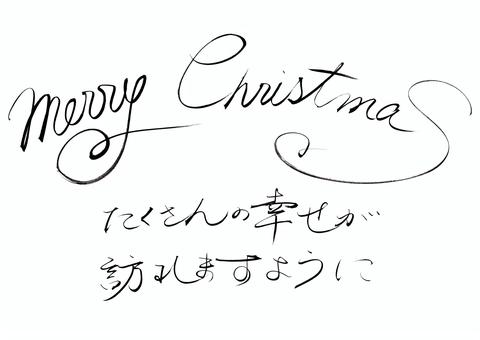 Merry Christmas
たくさんの幸せが
訪れますように